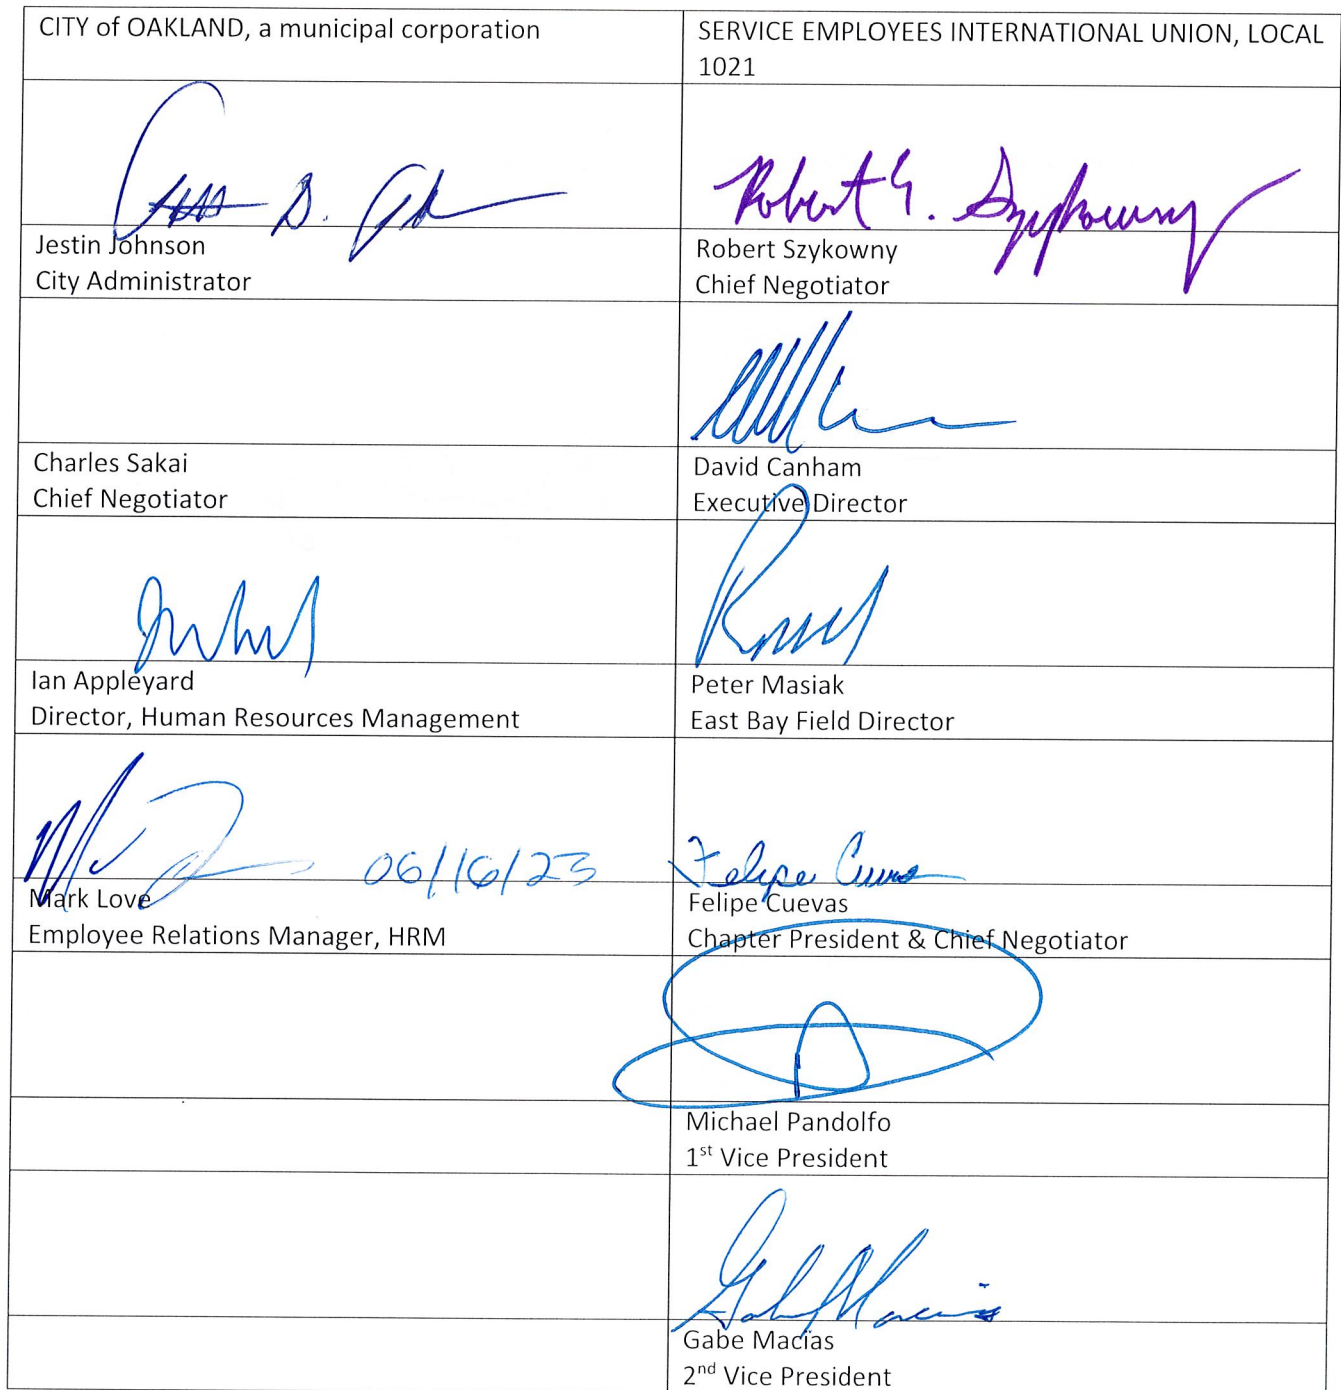 CITY of OAKLAND, a municipal corporation
SERVICE EMPLOYEES INTERNATIONAL UNION, LOCAL
1021
Robert G. Szykowny
Jestin Johnson
City Administrator
Robert Szykowny
Chief Negotiator
Charles Sakai
Chief Negotiator
David Canham
Executive Director
Ian Appleyard
Director, Human Resources Management
Peter Masiak
East Bay Field Director
06/16/23
Felipe Cuevas
Mark Love
Employee Relations Manager, HRM
Felipe Cuevas
Chapter President & Chief Negotiator
Michael Pandolfo
1st Vice President
Gabe Macias
Gabe Macias
2nd Vice President